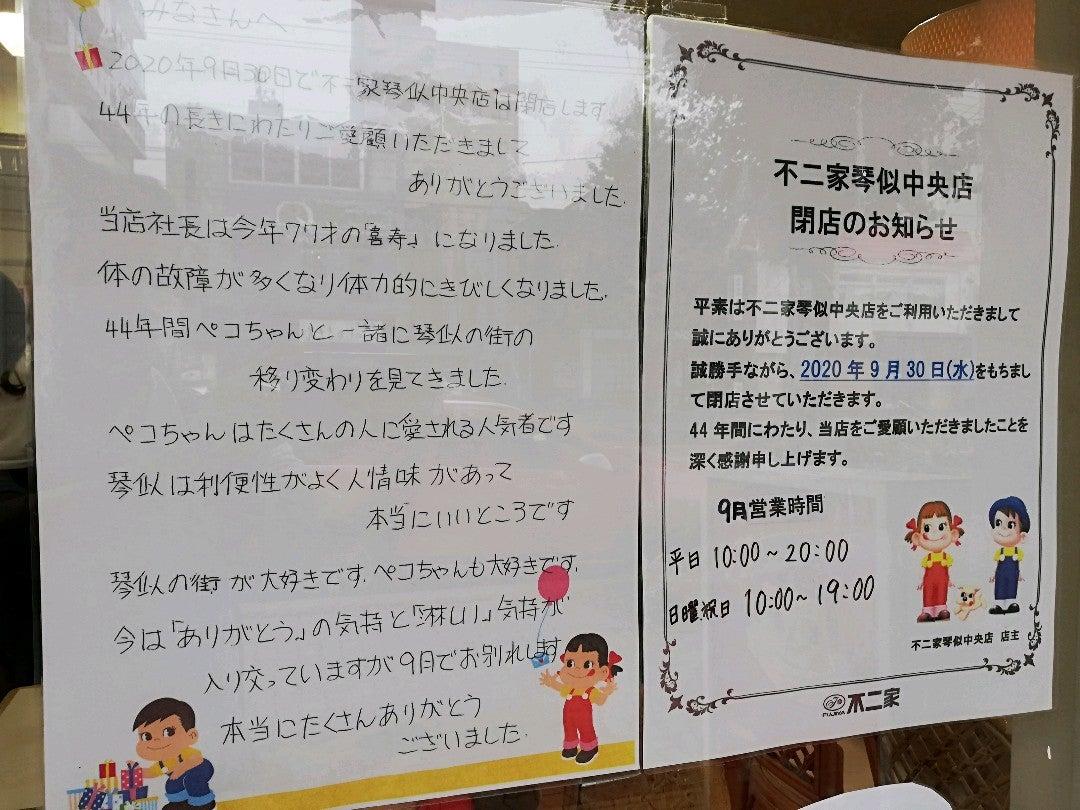 みなさんへ
2020年9月30日で不二家琴似中央店は閉店します
44年の長きにわたりご愛顧いただきまして
ありがとうございました.
当店社長は今年77才の「喜寿」になりました.
体の故障が多くなり体力的にきびしくなりました.
44年間ペコちゃんと一諸に琴似の街の
移り変わりを見てきました.
ペコちゃんはたくさんの人に愛される人気者です
琴似は利便性がよく人情味があって
本当にいいところです
琴似の街が大好きです.ペコちゃんも大好きです.
今は「ありがとう」の気持と「淋しい」気持が
入り交っていますが9月でお別れします
本当にたくさんありがとう
ございました.
不二家琴似中央店
閉店のお知らせ
平素は不二家琴似中央店をご利用いただきまして
誠にありがとうございます。
誠勝手ながら、2020年9月30日(水)をもちまし
て閉店させていただきます。
44年間にわたり、当店をご愛顧いただきましたことを
深く感謝申し上げます。
9月営業時間
平日 10:00～20:00
日曜祝日 10:00～19:00
不二家琴似中央店 店主
FUJIYA 不二家